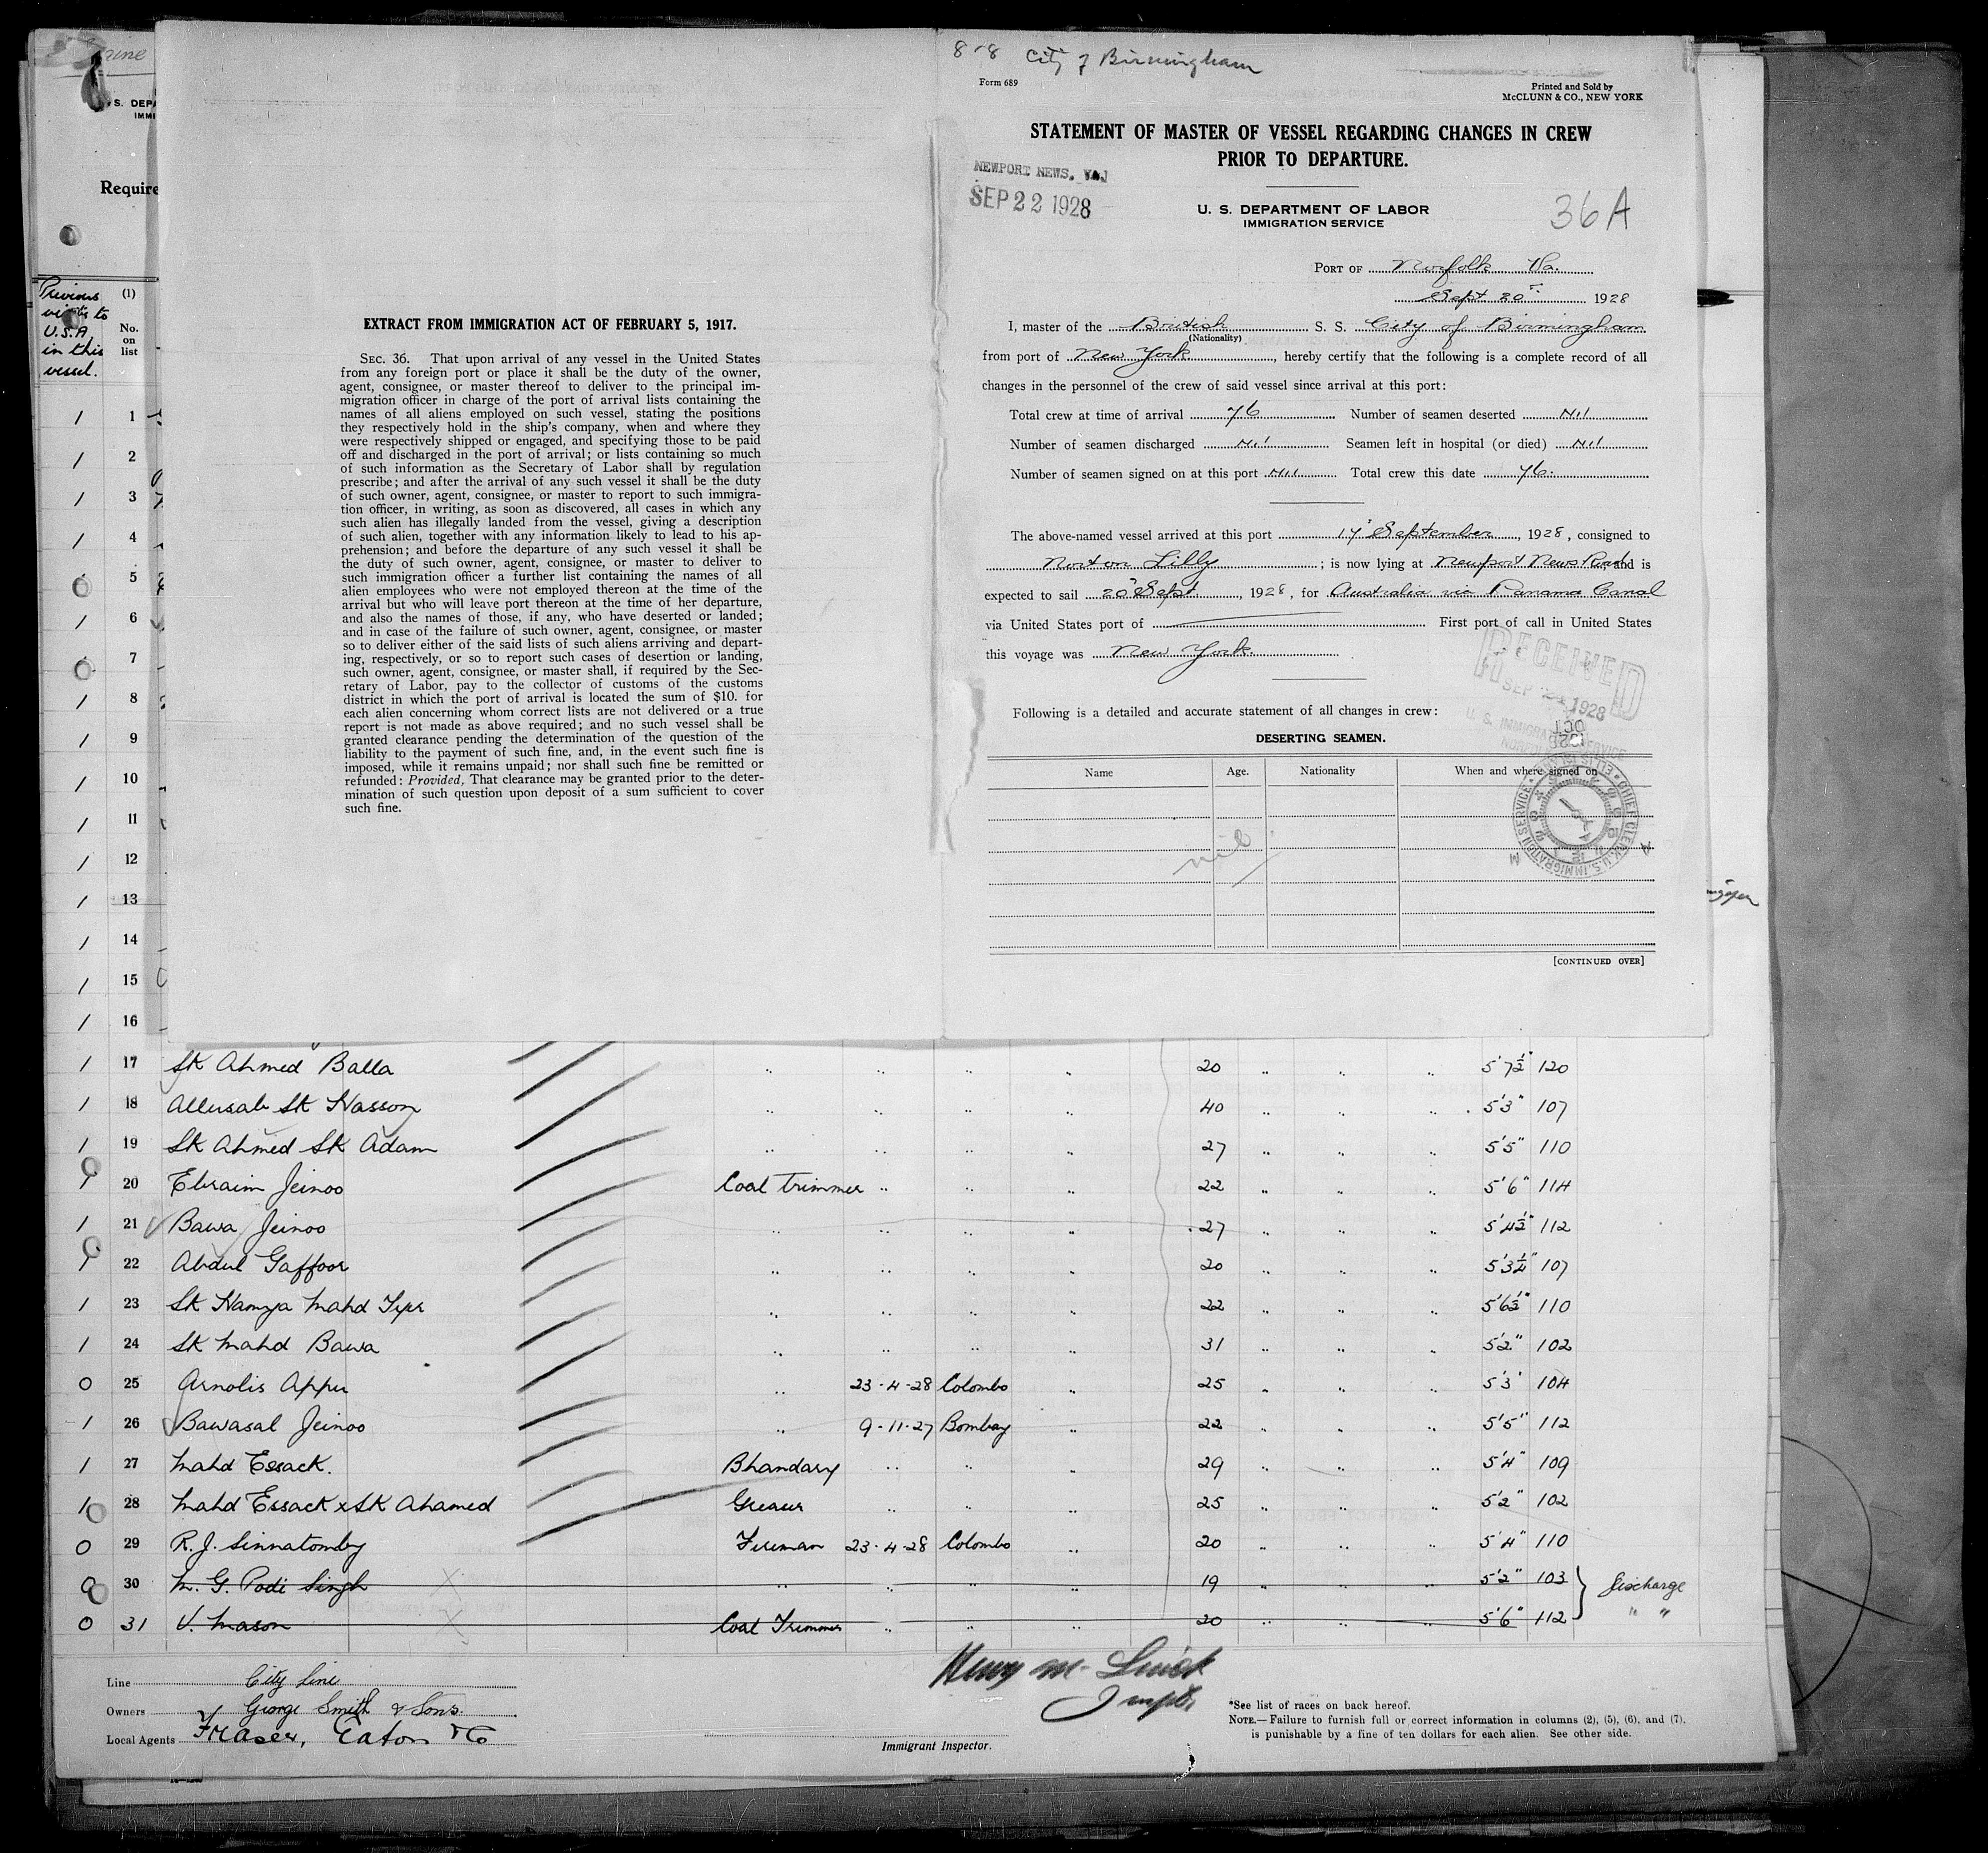 8-8 City of Birmingham
Form 689
Printed and Sold by
McCLUNN & CO., NEW YORK
STATEMENT OF MASTER OF VESSEL REGARDING CHANGES IN CREW
PRIOR TO DEPARTURE.
NEWPORT NEWS, VA
SEP 22 1928
U. S. DEPARTMENT OF LABOR
IMMIGRATION SERVICE
36A
PORT OF Norfolk Va.
Sept 20 1928
I, master of the British S. S. City of Birmingham
(Nationality)
from port of New York, hereby certify that the following is a complete record of all
changes in the personnel of the crew of said vessel since arrival at this port:
Total crew at time of arrival 76 Number of seamen deserted Nil
Number of seamen discharged Nil Seamen left in hospital (or died) Nil
Number of seamen signed on at this port Nil Total crew this date 76.
The above-named vessel arrived at this port 17 September, 1928, consigned to
Norton Lilly; is now lying at Newport News and is
expected to sail 20 Sept, 1928, for Australia via Panama Canal
via United States port of First port of call in United States
this voyage was New York.
RECEIVED
SEP 1928
U. S. IMMIGRATION SERVICE
Following is a detailed and accurate statement of all changes in crew:
DESERTING SEAMEN.
Name Age. Nationality When and where signed on
nil
[CONTINUED OVER]
EXTRACT FROM IMMIGRATION ACT OF FEBRUARY 5, 1917.
SEC. 36. That upon arrival of any vessel in the United States
from any foreign port or place it shall be the duty of the owner,
agent, consignee, or master thereof to deliver to the principal im-
migration officer in charge of the port of arrival lists containing the
names of all aliens employed on such vessel, stating the positions
they respectively hold in the ship's company, when and where they
were respectively shipped or engaged, and specifying those to be paid
off and discharged in the port of arrival; or lists containing so much
of such information as the Secretary of Labor shall by regulation
prescribe; and after the arrival of any such vessel it shall be the duty
of such owner, agent, consignee, or master to report to such immigra-
tion officer, in writing, as soon as discovered, all cases in which any
such alien has illegally landed from the vessel, giving a description
of such alien, together with any information likely to lead to his ap-
prehension; and before the departure of any such vessel it shall be
the duty of such owner, agent, consignee, or master to deliver to
such immigration officer a further list containing the names of all
alien employees who were not employed thereon at the time of the
arrival but who will leave port thereon at the time of her departure,
and also the names of those, if any, who have deserted or landed;
and in case of the failure of such owner, agent, consignee, or master
so to deliver either of the said lists of such aliens arriving and depart-
ing, respectively, or so to report such cases of desertion or landing,
such owner, agent, consignee, or master shall, if required by the Sec-
retary of Labor, pay to the collector of customs of the customs
district in which the port of arrival is located the sum of $10. for
each alien concerning whom correct lists are not delivered or a true
report is not made as above required; and no such vessel shall be
granted clearance pending the determination of the question of the
liability to the payment of such fine, and, in the event such fine is
imposed, while it remains unpaid; nor shall such fine be remitted or
refunded: Provided, That clearance may be granted prior to the deter-
mination of such question upon deposit of a sum sufficient to cover
such fine.
S. DEPA
IMMI
Require
Previous visits to U.S.A. in this vessel.
(1)
No. on list
1 1
1 2
1 3
1 4
5
1 6
7
1 8
1 9
1 10
1 11
1 12
1 13
1 14
1 15
1 16
1 17 Sk Ahmed Balla 20 5'7½" 120
1 18 Allusab Sk Hasson 40 5'3" 107
1 19 Sk Ahmed Sk Adam 27 5'5" 110
1 20 Ebraim Jeinoo Coal trimmer 22 5'6" 114
1 21 Bawa Jeinoo 27 5'4½" 112
1 22 Abdul Gaffoor 20 5'3¼" 107
1 23 Sk Hamza Mahd 22 5'6½" 110
1 24 Sk Mahd Bawa 31 5'2" 102
0 25 Arnolis Appu 23-4-28 Colombo 25 5'3' 104
1 26 Bawasal Jeinoo 9-11-27 Bombay 22 5'5" 112
1 27 Mahd Essack. Bhandary 29 5'4" 109
1 28 Mahd Essack x Sk Ahamed Greaser 25 5'2" 102
0 29 R. J. Sinnatomby Fireman 23-4-28 Colombo 20 5'4" 110
0 30 M. G. Podi Singh 19 5'2" 103 Discharge
0 31 V. Mason Coal Trimmer 20 5'6" 112 " "
Line City Line
Owners George Smith & Sons.
Local Agents Fraser, Eaton & Co
Immigrant Inspector.
*See list of races on back hereof.
NOTE.—Failure to furnish full or correct information in columns (2), (5), (6), and (7).
is punishable by a fine of ten dollars for each alien. See other side.